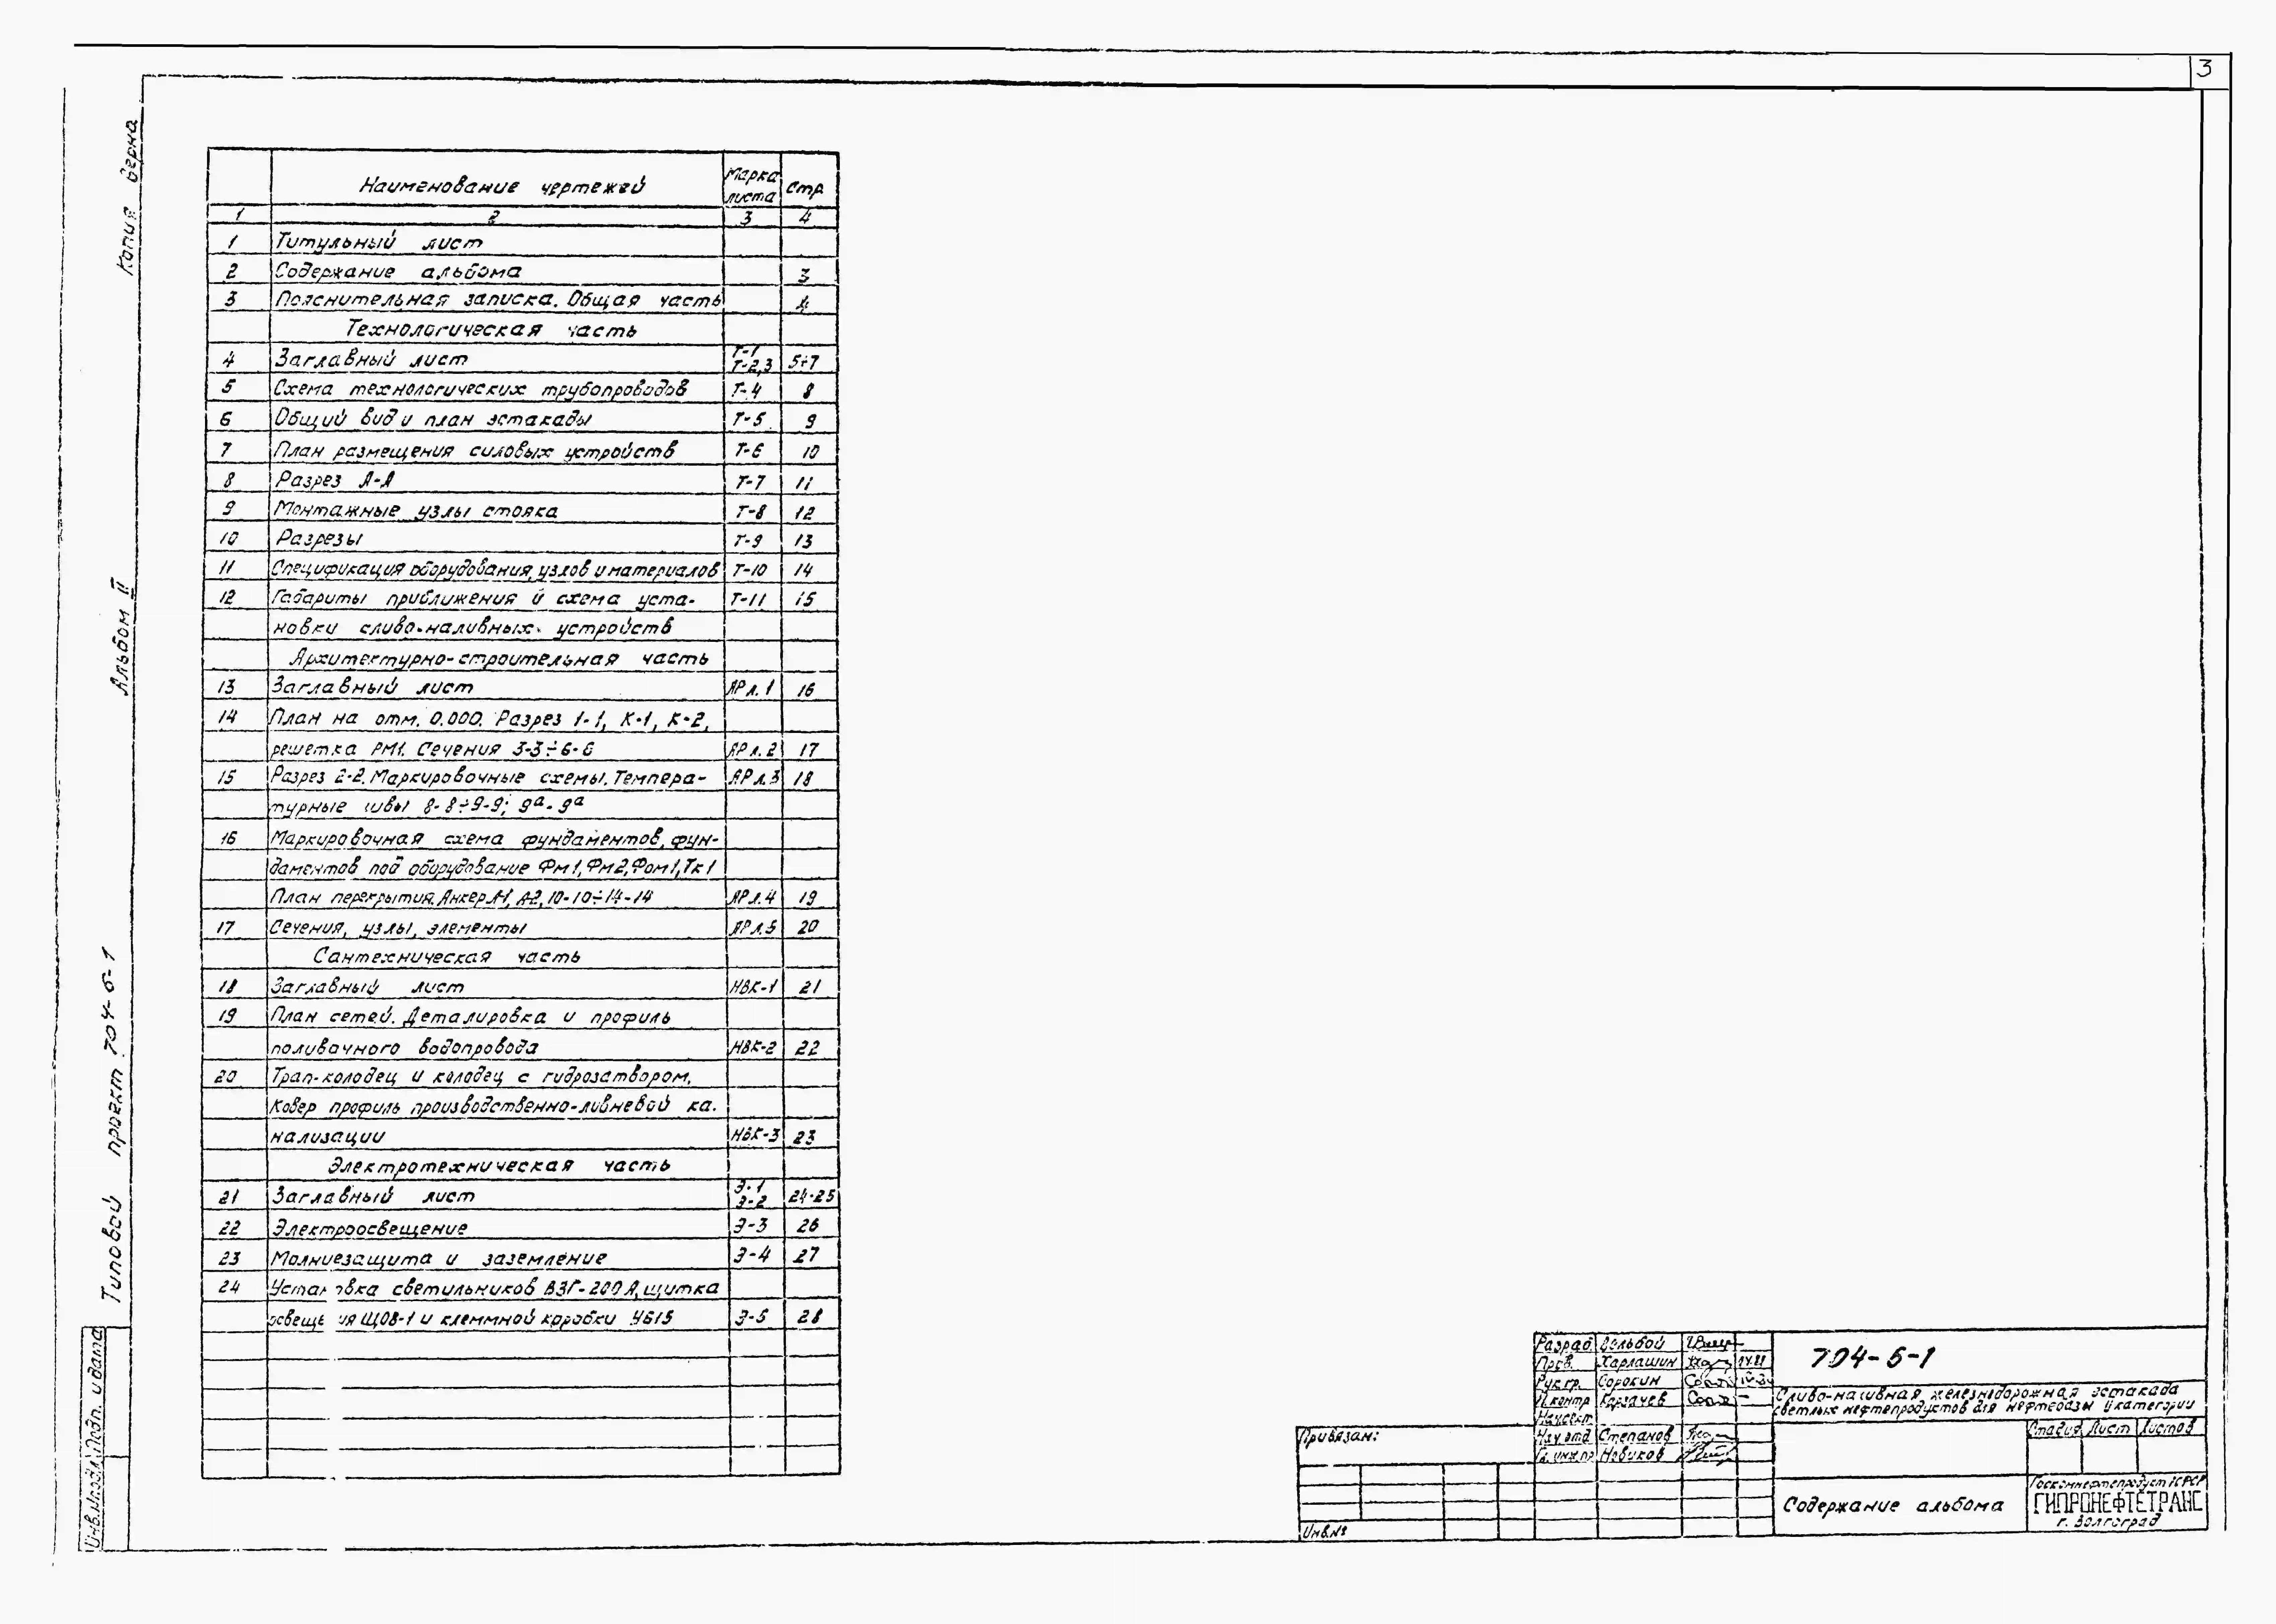 3
Копия верна
Альбом II
Типовой проект 704-5-1
Инв.№подл. Подп. и дата
Наименование чертежей Марка листа Стр
1 2 3 4
1 Титульный лист
2 Содержание альбома 3
3 Пояснительная записка. Общая часть 4
Технологическая часть
4 Заглавный лист Т-1 Т-2,3 5÷7
5 Схема технологических трубопроводов Т-4 8
6 Общий вид и план эстакады Т-5 9
7 План размещения силовых устройств Т-6 10
8 Разрез А-А Т-7 11
9 Монтажные узлы стояка Т-8 12
10 Разрезы Т-9 13
11 Спецификация оборудования, узлов и материалов Т-10 14
12 Габариты приближения и схема уста- Т-11 15
новки сливо-наливных устройств
Архитектурно-строительная часть
13 Заглавный лист АР л.1 16
14 План на отм. 0.000. Разрез 1-1, К-1, К-2,
решетка РМ1. Сечения 3-3÷6-6 АР л.2 17
15 Разрез 2-2. Маркировочные схемы. Темпера- АР л.3 18
турные швы 8-8÷9-9; 9а-9а
16 Маркировочная схема фундаментов, фун-
даментов под оборудование Фм1, Фм2, Фом1, Тк1
План перекрытия. Анкер А-1, А-2, 10-10÷14-14 АР л.4 19
17 Сечения, узлы, элементы АР л.5 20
Сантехническая часть
18 Заглавный лист НВК-1 21
19 План сетей. Деталировка и профиль
поливочного водопровода НВК-2 22
20 Трап-колодец и колодец с гидрозатвором.
Ковер профиль производственно-ливневой ка-
нализации НВК-3 23
Электротехническая часть
21 Заглавный лист Э-1 Э-2 24-25
22 Электроосвещение Э-3 26
23 Молниезащита и заземление Э-4 27
24 Установка светильников ВЗГ-200А, щитка
освещения ЩОВ-1 и клеммной коробки У615 Э-5 28
Разраб.
Пров. Харлашин
Рук.гр. Сорокин
Н.контр Карзачев
Нач.сект.
Нач.отд. Степанов
Гл.инж.пр Новиков
704-5-1
Сливо-наливная железнодорожная эстакада
светлых нефтепродуктов для нефтебазы II категории
Привязан:
Инв.№
Стадия Лист Листов
Содержание альбома
Госкомнефтепродукт РСФСР
ГИПРОНЕФТЕТРАНС
г. Волгоград